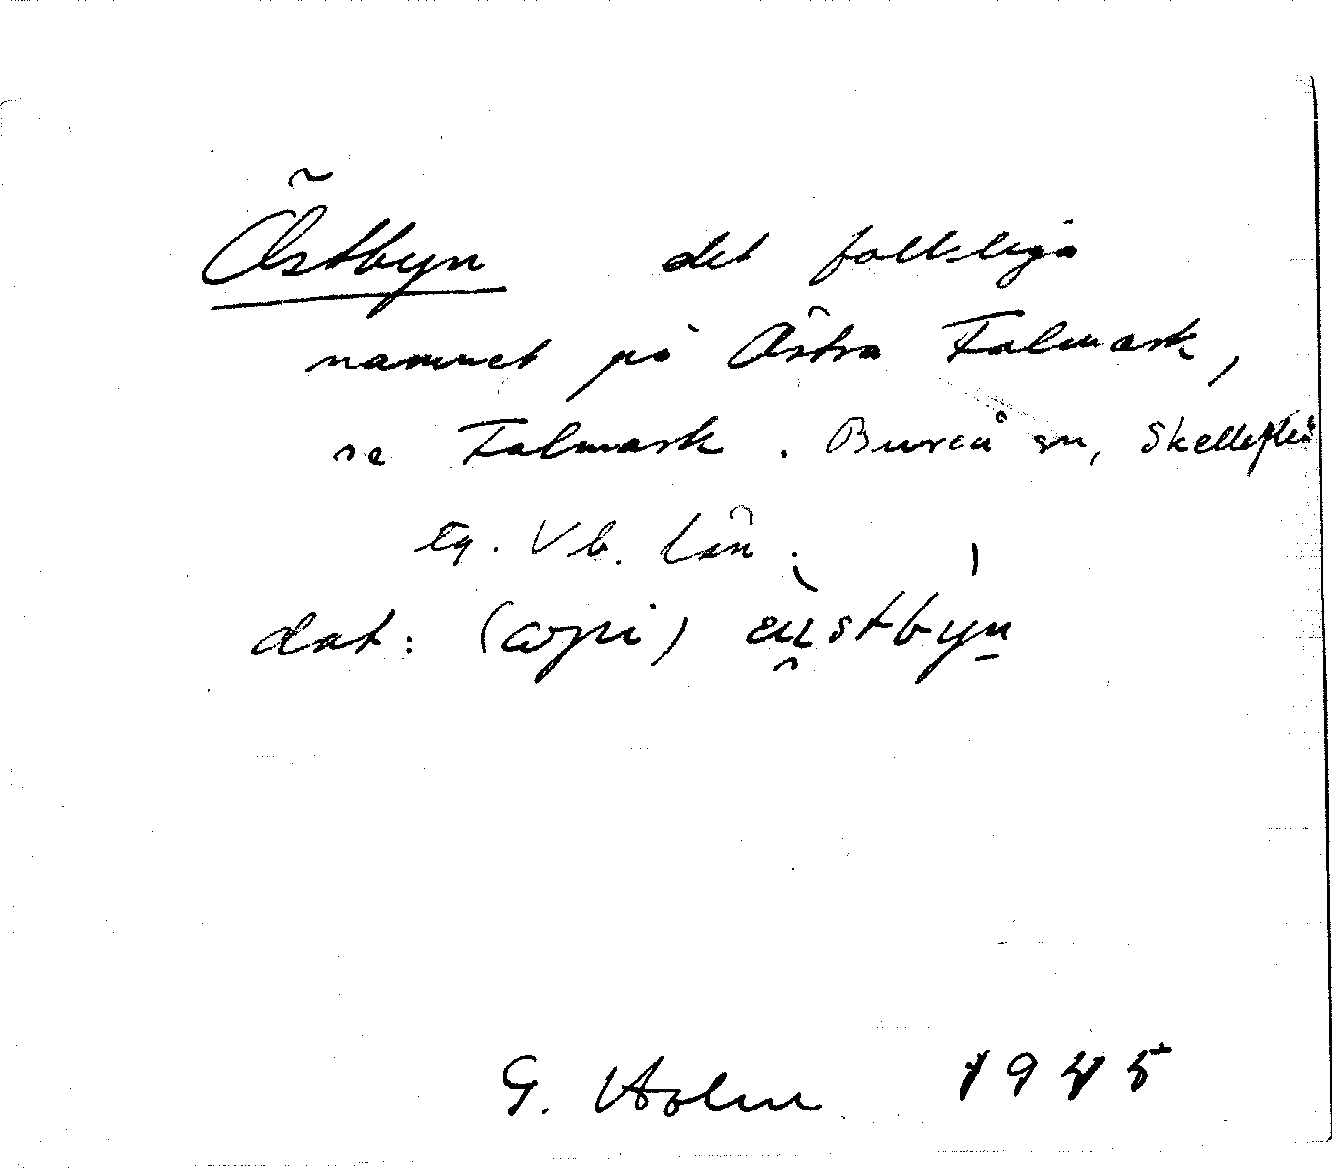 Östbyn det folkliga
namnet på Östra Falmark,
se Falmark. Bureå sn, Skellefteå
tg. Vb. län.
dat: (copi) eu̯stbyn
G. Holm 1945